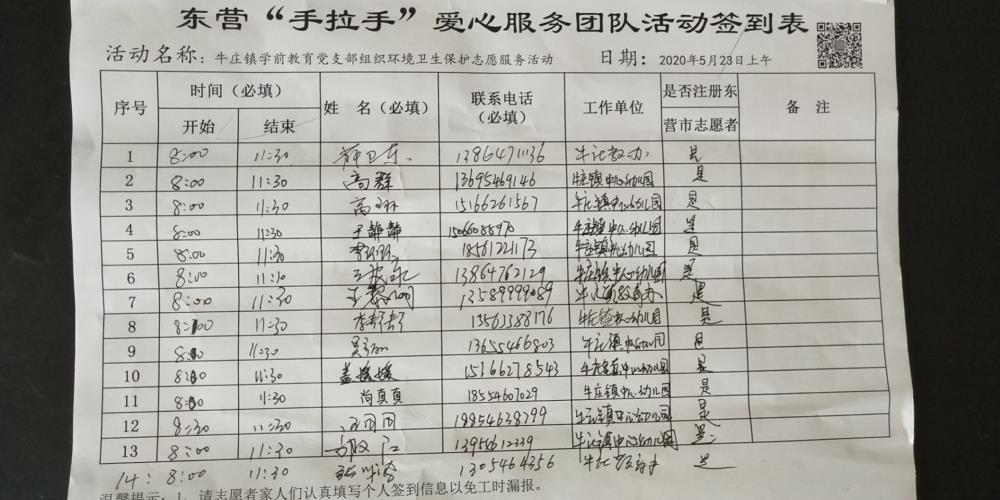 东营“手拉手”爱心服务团队活动签到表
活动名称：牛庄镇学前教育党支部组织环境卫生保护志愿服务活动 日期：2020年5月23日上午
序号 时间（必填） 开始 结束 姓 名（必填） 联系电话（必填） 工作单位 是否注册东营市志愿者 备 注
1 8:00 11:30 1386471136 牛记教办 是
2 8:00 11:30 高群 13695469146 牛庄镇中心幼儿园 是
3 8:00 11:30 15166261567 牛庄镇中心幼儿园 是
4 8:00 11:30 于静静 15066088970 牛庄镇中心幼儿园 是
5 8:00 11:30 18561221173 牛庄镇中心幼儿园 是
6 8:00 11:10 13864762129 牛庄镇中心幼儿园 是
7 8:00 11:30 13589999089 是
8 8:00 11:30 13563388176 牛庄镇中心幼儿园 是
9 8:00 11:30 13655466803 牛庄镇中心幼儿园 是
10 8:00 11:30 盖媛媛 15166278543 牛庄镇中心幼儿园 是
11 8:00 11:30 尚真真 18554607029 牛庄镇中心幼儿园 是
12 8:30 11:30 18854638799 牛庄镇中心幼儿园 是
13 8:00 11:30 13954612339 牛庄镇中心幼儿园 是
14: 8:00 11:30 1305464356 是
温馨提示：1、请志愿者家人们认真填写个人签到信息以免工时漏报。